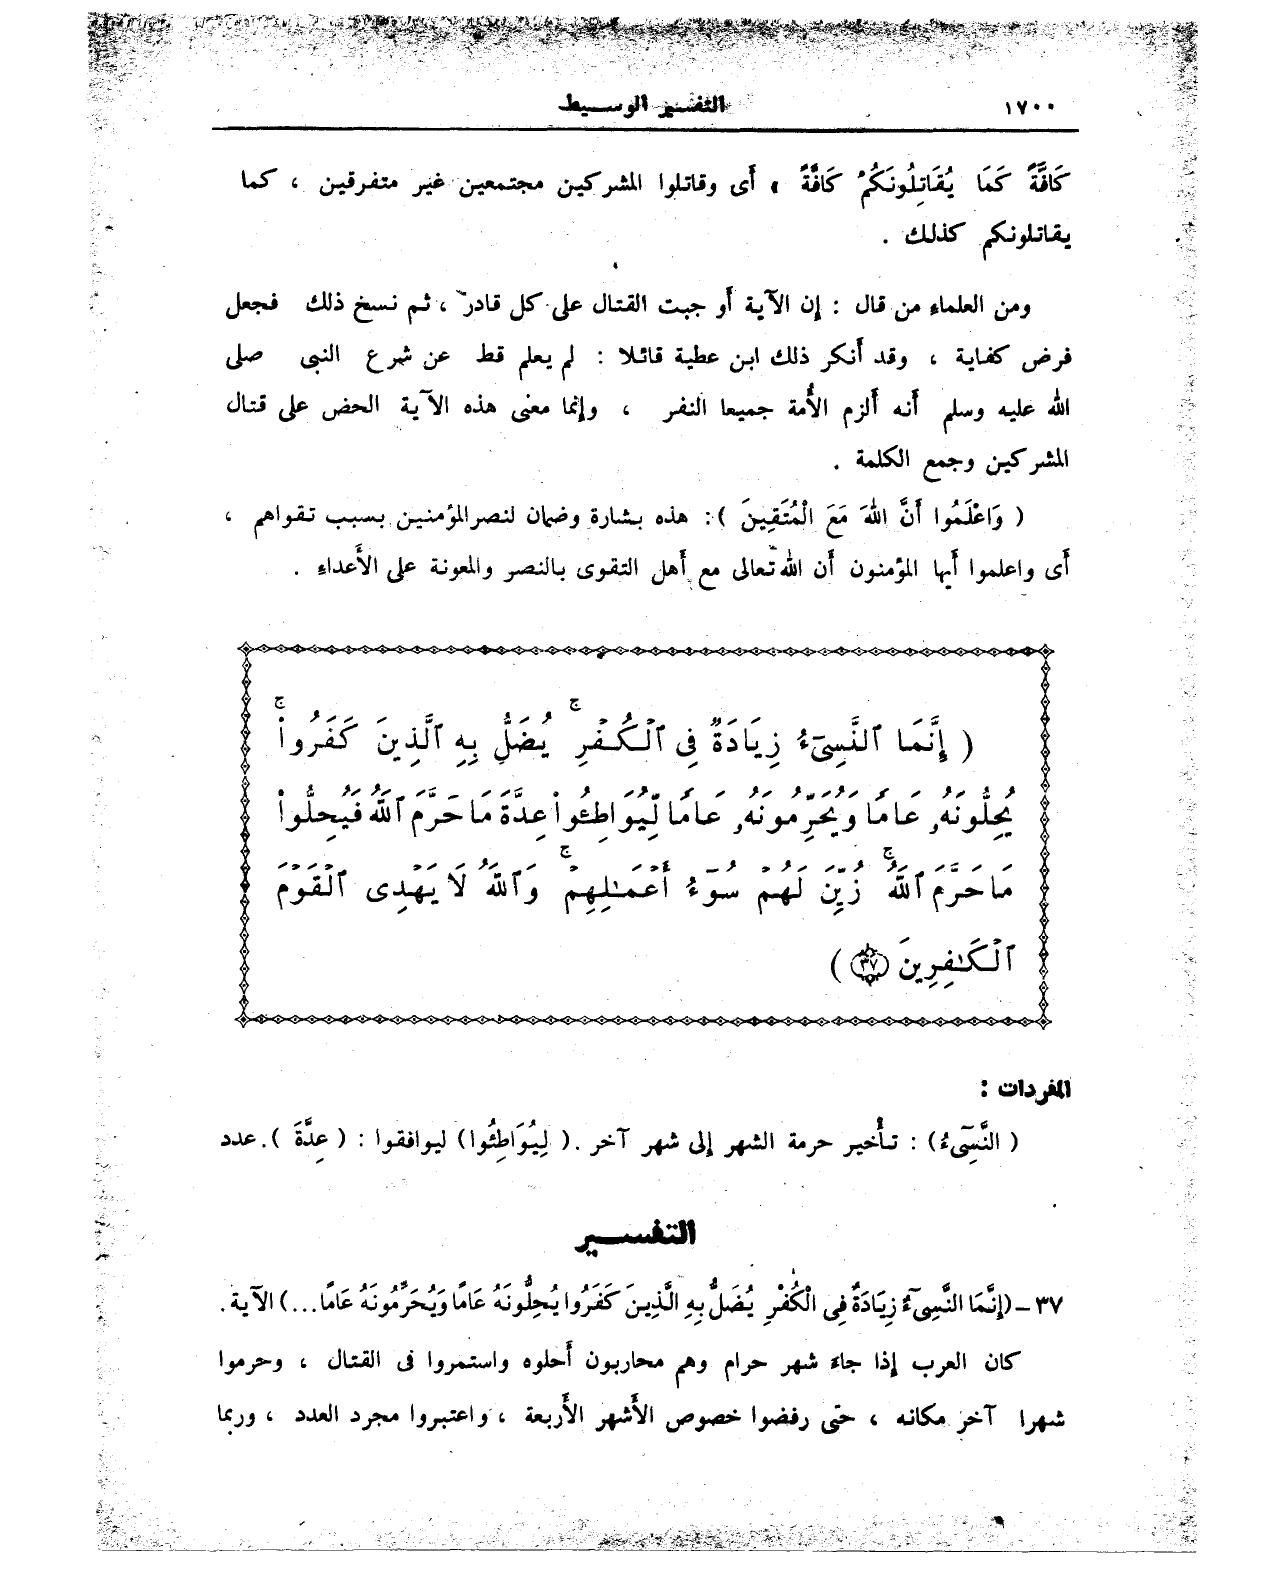 ١٧٠٠ التفسير الوسيط
كَافَّةً كَمَا يُقَاتِلُونَكُمْ كَافَّةً ، أَى وقاتلوا المشركين مجتمعين غير متفرقين ، كما
يقاتلونكم كذلك .
ومن العلماءِ من قال : إن الآية أَو جبت القتال على كل قادر ، ثم نسخ ذلك فجعل
فرض كفاية ، وقد أَنكر ذلك ابن عطية قائلا : لم يعلم قط عن شرع النبى صلى
الله عليه وسلم أَنه أَلزم الأُمة جميعا النفر ، وإنما معنى هذه الآية الحض على قتال
المشركين وجمع الكلمة .
( وَاعْلَمُوا أَنَّ اللهَ مَعَ الْمُتَقِينَ ): هذه بشارة وضمان لنصر المؤمنين بسبب تقواهم ،
أَى واعلموا أَيها المؤمنون أَن الله تعالى مع أَهل التقوى بالنصر والمعونة على الأَعداءِ .
( إِنَّمَا ٱلنَّسِىٓءُ زِيَادَةٌ فِى ٱلْكُفْرِ ۚ يُضَلُّ بِهِ ٱلَّذِينَ كَفَرُوا۟ ۚ
يُحِلُّونَهُۥ عَامًا وَيُحَرِّمُونَهُۥ عَامًا لِّيُوَاطِئُوا۟ عِدَّةَ مَا حَرَّمَ ٱللَّهُ فَيُحِلُّوا۟
مَا حَرَّمَ ٱللَّهُ ۚ زُيِّنَ لَهُمْ سُوٓءُ أَعْمَـٰلِهِمْ ۗ وَٱللَّهُ لَا يَهْدِى ٱلْقَوْمَ
ٱلْكَـٰفِرِينَ ٣٧ )
المفردات :
( النَّسِىٓءُ ) : تأْخير حرمة الشهر إلى شهر آخر . ( لِيُوَاطِئُوا ) ليوافقوا : ( عِدَّةَ ) . عدد
التفسير
٣٧ – (إِنَّمَا النَّسِىٓءُ زِيَادَةٌ فِى الْكُفْرِ يُضَلُّ بِهِ الَّذِينَ كَفَرُوا يُحِلُّونَهُ عَامًا وَيُحَرِّمُونَهُ عَامًا...) الآية .
كان العرب إذا جاءَ شهر حرام وهم محاربون أَحلوه واستمروا فى القتال ، وحرموا
شهرا آخر مكانه ، حتى رفضوا خصوص الأَشهر الأَربعة ، واعتبروا مجرد العدد ، وربما